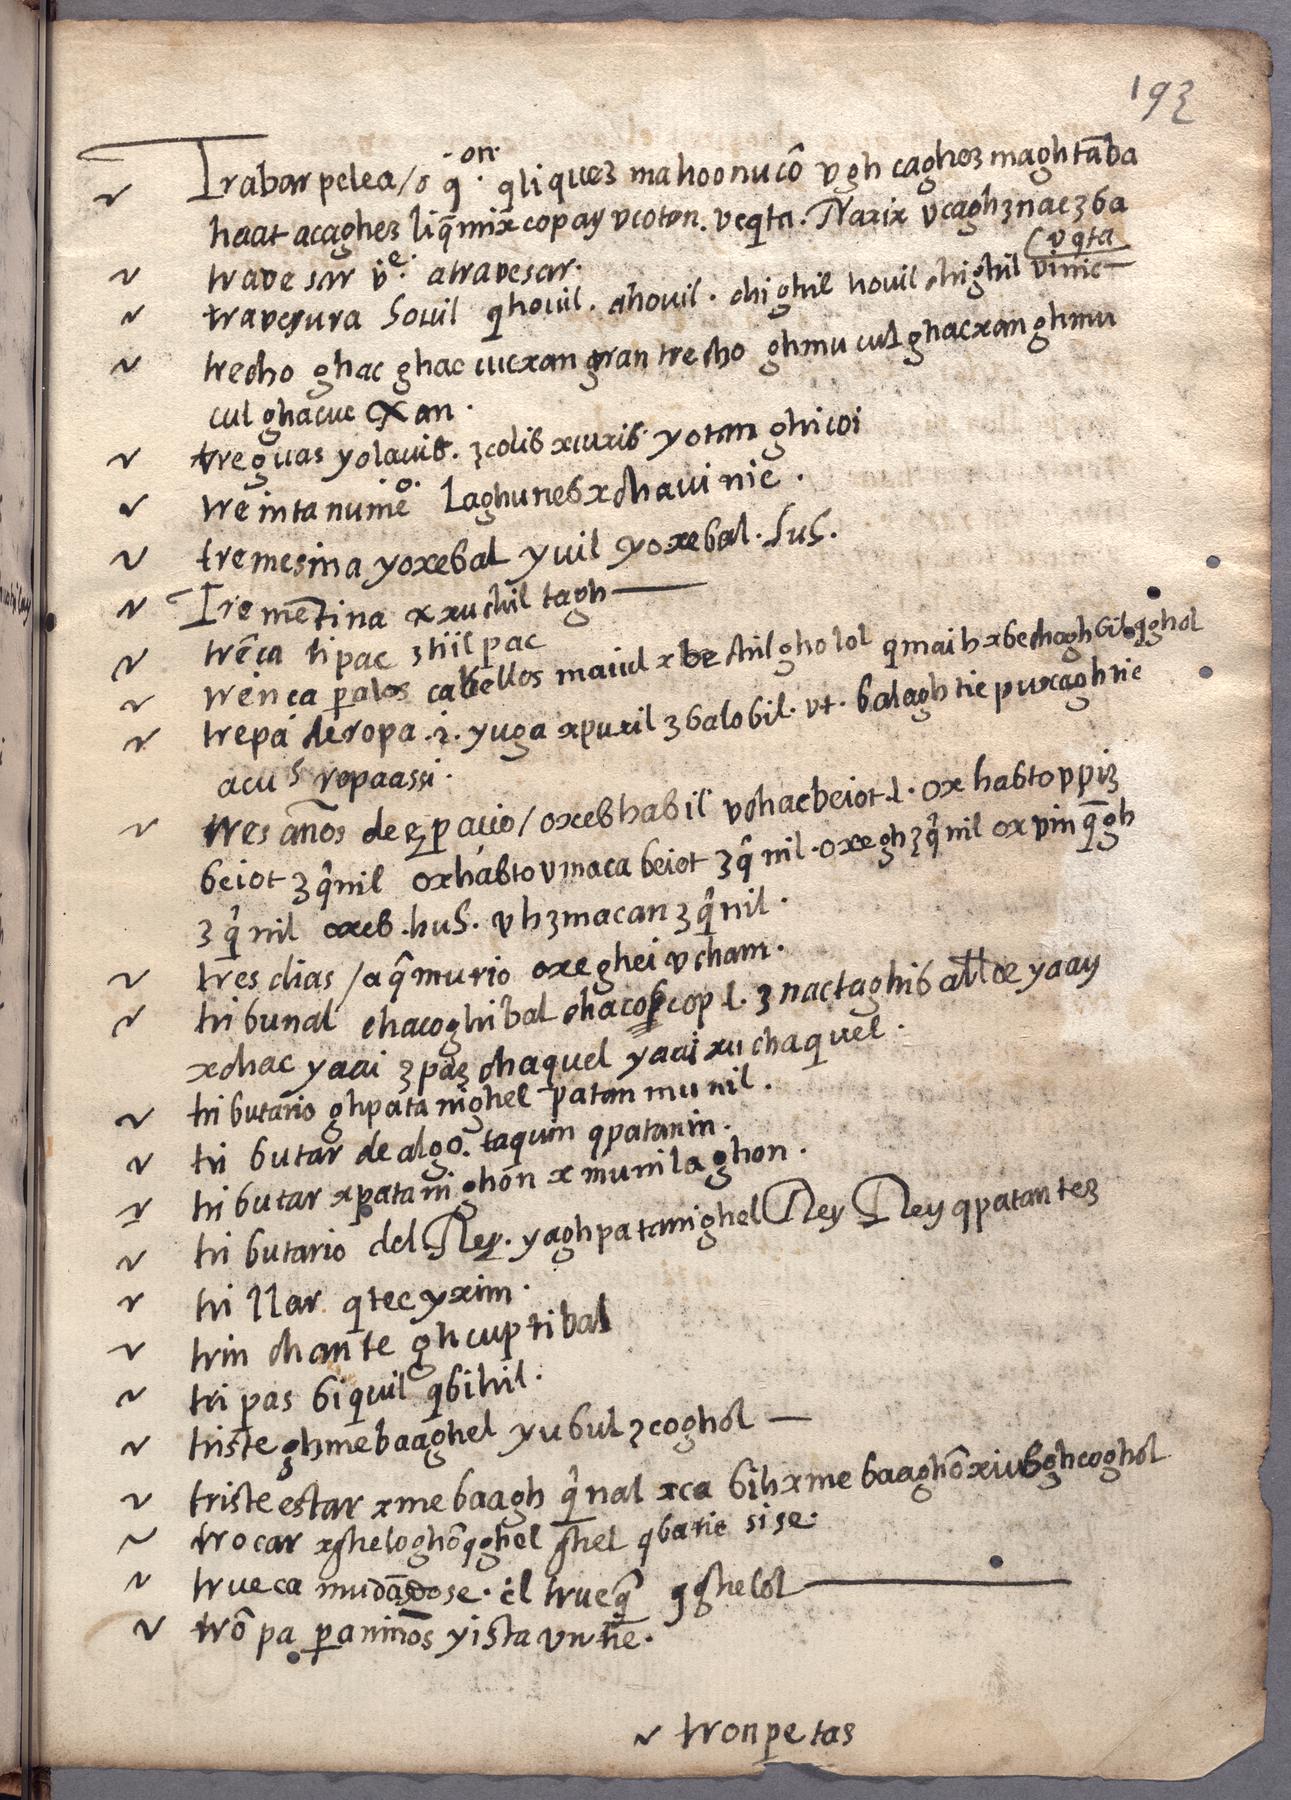 193
Trabar pelea / o q̃.on. qliquez mahoonucô vgh caghez maghtãba
haat acaghez liq̃mix̃ copay vcoton. vcqta. Naxix vcaghznaczba
travesar vᵉ. atravesar. (vqta
travesura Sovil qhovil. ahovil. chighil hovil chighil vinic—
trecho ghac ghac cucxan gran trecho ghmu cul ghacxan ghmu
cul ghacuc xan.
treguas yolavib. zcolib xcuxib yotan ghicoi
treinta numẽº. Laghuneb xchavinic.
tremesina yoxebal yuil yoxebal. huh.
Tremẽtina xxuchil tagh
trẽca tipac ztiil pac
trença palos cabellos maiul xbechilgholol qmaih xbechoghbil qghol
trepa deropa .i. yuga xpuxil zbalobil. vt. balaghtic puxaghtic
acuh ropaassi.
tres años de espacio / oxeb habil vchacbeiot .l. oxhabto vpiz
beiot zq̂nil oxhabto vmaca beiot zq̂nil. oxeghzq̂nil oxvinq̃gh
zq̂nil oxeb.huh. vhzmacan zq̂nil.
tres dias / aq̂ murio oxeghei vcham.
tribunal chacoghibal chacobcop .l. znactaghib allde yaay
xchac yaai zpaz chaquel yaai xuchaquel.
tributario ghpatanighel patan munil.
tributar de algo. taquin qpatanin.
tributar xpatanighõn xmunilaghon.
tributario del Rey. yaghpatanighel Rey Rey qpatantez
trillar qtec yxim.
trinchante ghcuptibal
tripas biquil qbihil.
triste ghmebaaghel yubul zcoghôl—
triste estar xmebaagh q̂nal xca bihxmebaaghôxiubghcoghôl
trocar xgheloghôqghel ghel qbatic sise.
trueca mudãdose. el trueq̃ qghelôl
trôpa pa niños yista vntie.
tronpetas